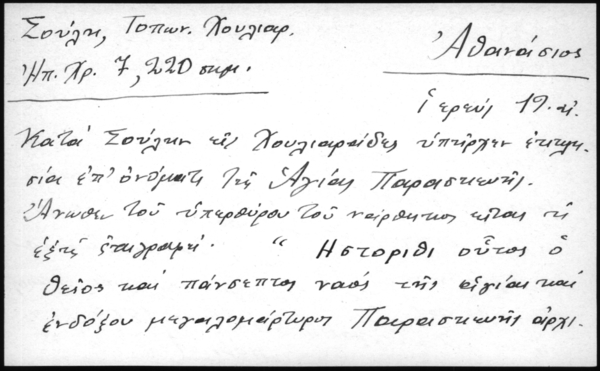 Σούλη, Τοπων. Χουλιαρ.
Ἠπ. Χρ. 7, 220 σημ.
Ἀθανάσιος
ἱερεύς 19. αἰ.
Κατά Σούλην εἰς Χουλιαράδες ὑπῆρχεν ἐκκλη-
σία ἐπ' ὀνόματι τῆς Ἁγίας Παρασκευῆς.
Ἄνωθεν τοῦ ὑπερθύρου τοῦ νάρθηκος κεῖται ἡ
ἑξῆς ἐπιγραφή. " Ηστορίθι οὗτος ὁ
θεῖος καί πάνσεπτος ναός τῆς ἁγίας καί
ἐνδόξου μεγαλομάρτυρος Παρασκευῆς ἀρχι-